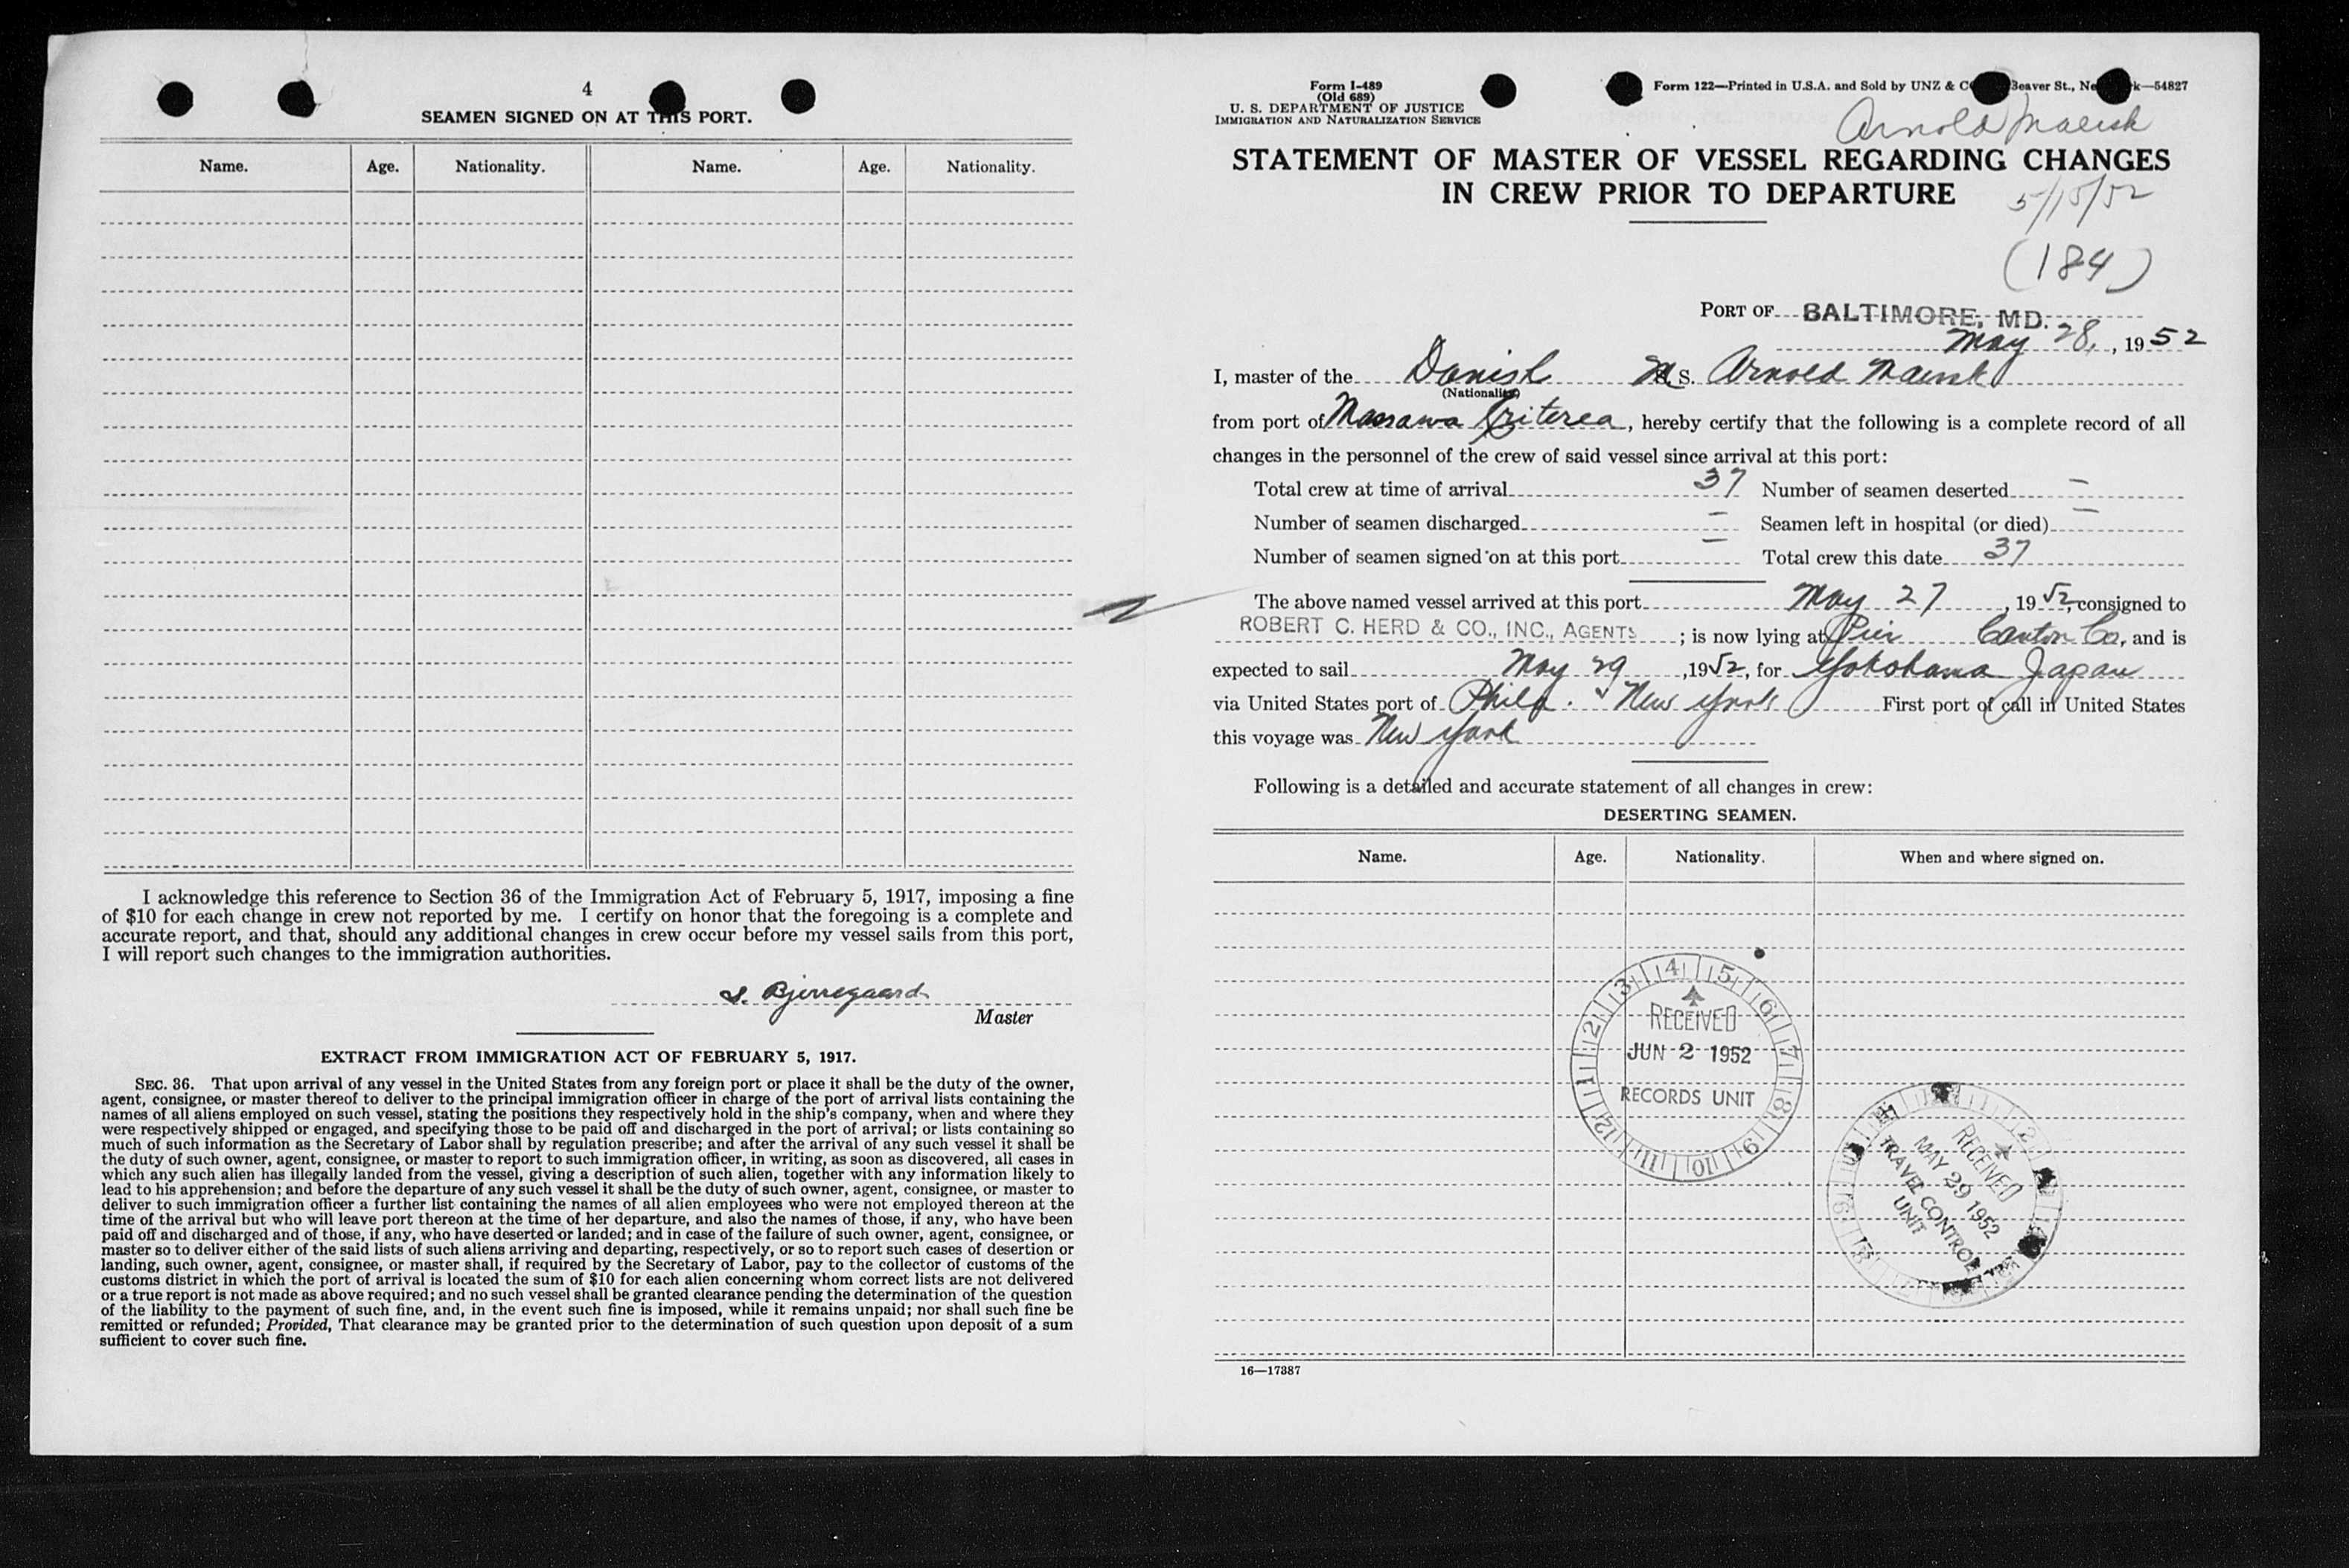 4
SEAMEN SIGNED ON AT THIS PORT.
Name. Age. Nationality. Name. Age. Nationality.
I acknowledge this reference to Section 36 of the Immigration Act of February 5, 1917, imposing a fine
of $10 for each change in crew not reported by me. I certify on honor that the foregoing is a complete and
accurate report, and that, should any additional changes in crew occur before my vessel sails from this port,
I will report such changes to the immigration authorities.
S. Bjerregaard
Master
EXTRACT FROM IMMIGRATION ACT OF FEBRUARY 5, 1917.
SEC. 36. That upon arrival of any vessel in the United States from any foreign port or place it shall be the duty of the owner,
agent, consignee, or master thereof to deliver to the principal immigration officer in charge of the port of arrival lists containing the
names of all aliens employed on such vessel, stating the positions they respectively hold in the ship's company, when and where they
were respectively shipped or engaged, and specifying those to be paid off and discharged in the port of arrival; or lists containing so
much of such information as the Secretary of Labor shall by regulation prescribe; and after the arrival of any such vessel it shall be
the duty of such owner, agent, consignee, or master to report to such immigration officer, in writing, as soon as discovered, all cases in
which any such alien has illegally landed from the vessel, giving a description of such alien, together with any information likely to
lead to his apprehension; and before the departure of any such vessel it shall be the duty of such owner, agent, consignee, or master to
deliver to such immigration officer a further list containing the names of all alien employees who were not employed thereon at the
time of the arrival but who will leave port thereon at the time of her departure, and also the names of those, if any, who have been
paid off and discharged and of those, if any, who have deserted or landed; and in case of the failure of such owner, agent, consignee, or
master so to deliver either of the said lists of such aliens arriving and departing, respectively, or so to report such cases of desertion or
landing, such owner, agent, consignee, or master shall, if required by the Secretary of Labor, pay to the collector of customs of the
customs district in which the port of arrival is located the sum of $10 for each alien concerning whom correct lists are not delivered
or a true report is not made as above required; and no such vessel shall be granted clearance pending the determination of the question
of the liability to the payment of such fine, and, in the event such fine is imposed, while it remains unpaid; nor shall such fine be
remitted or refunded; Provided, That clearance may be granted prior to the determination of such question upon deposit of a sum
sufficient to cover such fine.
Form I-489
(Old 689)
U. S. DEPARTMENT OF JUSTICE
IMMIGRATION AND NATURALIZATION SERVICE
Form 122—Printed in U.S.A. and Sold by UNZ & C Beaver St., Ne k—54827
Arnold Maersk
STATEMENT OF MASTER OF VESSEL REGARDING CHANGES
IN CREW PRIOR TO DEPARTURE
5/15/52
(184)
PORT OF BALTIMORE, MD.
May 28, , 1952
I, master of the Danish M. S. Arnold Maersk
(Nationality)
from port of Massawa Eriterea, hereby certify that the following is a complete record of all
changes in the personnel of the crew of said vessel since arrival at this port:
Total crew at time of arrival 37 Number of seamen deserted –
Number of seamen discharged – Seamen left in hospital (or died) –
Number of seamen signed on at this port – Total crew this date 37
The above named vessel arrived at this port May 27, 1952, consigned to
ROBERT C. HERD & CO., INC., AGENTS ; is now lying at Pier Canton Co, and is
expected to sail May 29, 1952, for Yokohama Japan
via United States port of Phila. & New York First port of call in United States
this voyage was New York
Following is a detailed and accurate statement of all changes in crew:
DESERTING SEAMEN.
Name. Age. Nationality. When and where signed on.
1 2 3 4 5 6 7 8 9 10 11 12
RECEIVED
JUN 2 1952
RECORDS UNIT
RECEIVED
MAY 29 1952
TRAVEL CONTROL
UNIT
16—17387